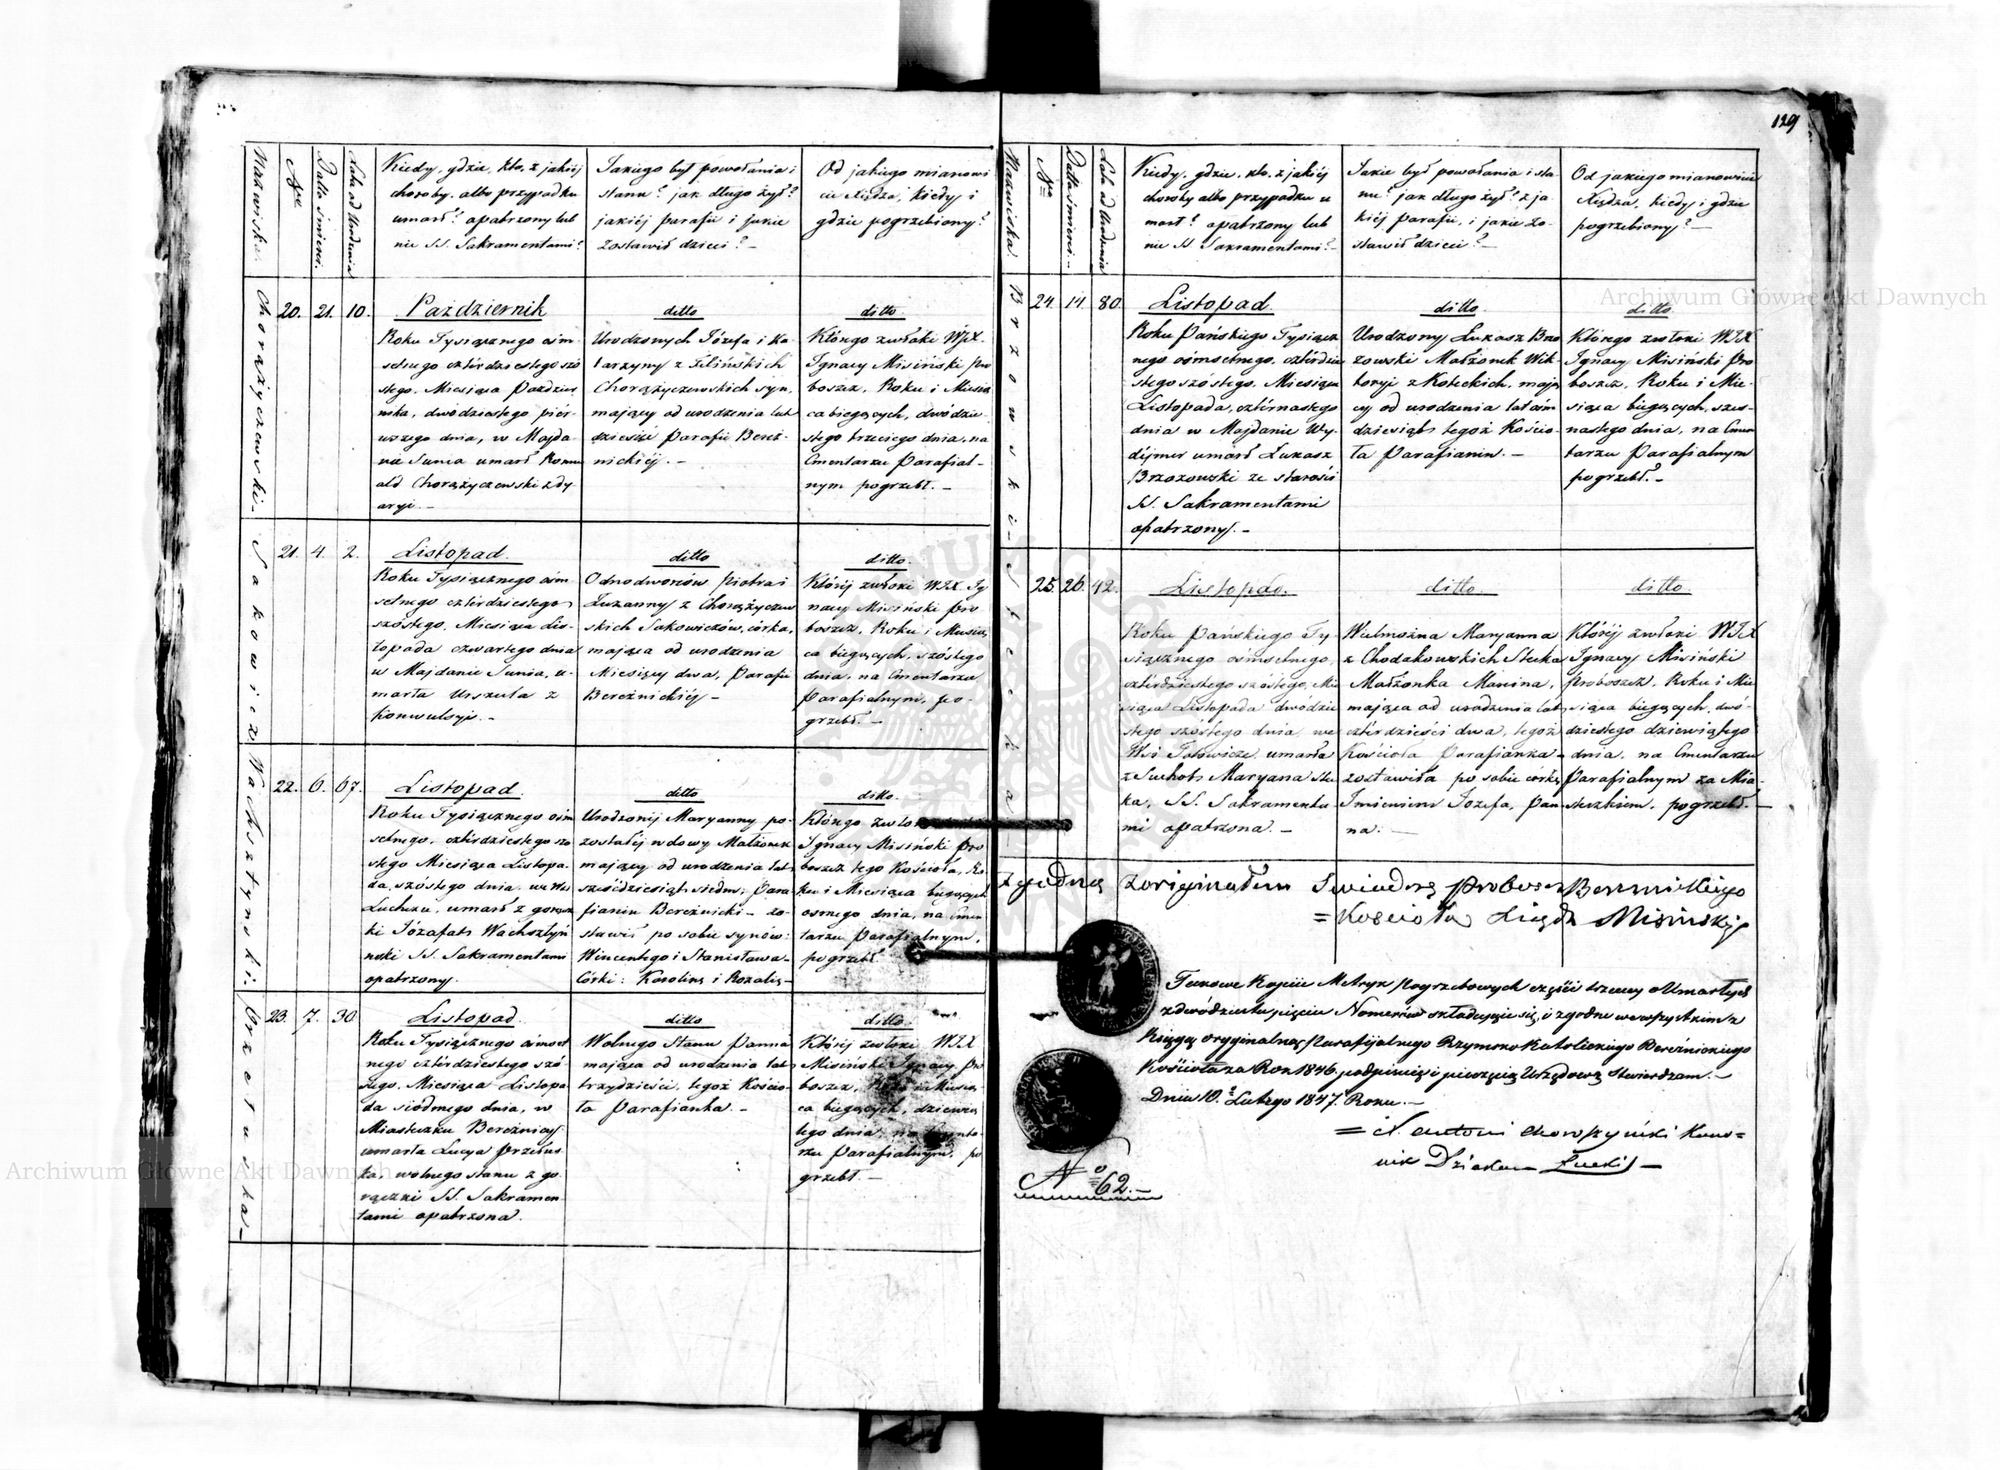 129
Nazwisko.
Nra
Data śmierci.
Lata od Urodzenia
Kiedy, gdzie, kto, z jakiéj
choroby, albo przypadku
umarł? opatrzony lub
nie SS. Sakramentami?
Jakiego był powołania i
stanu? jak długo żył?
jakiéj parafii i jakie
zostawił dzieci? –
Od jakiego mianowi
cie Xiędza, kiedy i
gdzie pogrzebiony?
Chorążyczewski.
20. 21. 10.
Październik
Roku Tysiącznego óśm
setnego cztérdziestego szó
stego, Miesiąca Paździer
nika, dwódziestego pier
wszego dnia, w Majda
nie Sunia umarł Romu
ald Chorążyczewski z dy
aryi. –
ditto
Urodzonych Józefa i Ka
tarzyny z Zilińskich
Chorążyczewskich syn,
mający od urodzenia lat
dziesięć Parafii Bereź-
nickiéj. –
ditto
Którego zwłoki WJX.
Ignacy Misiński Pro
boszcz, Roku i Miesią
ca bieżących, dwódzie
stego trzeciego dnia, na
Cmentarzu Parafial-
nym pogrzebł. –
Sakowicz
21. 4. 2.
Listopad.
Roku Tysiącznego óśm
setnego cztérdziestego
szóstego, Miesiąca Lis-
topada czwartego dnia
w Majdanie Sunia, u-
marła Urszula z
konwulsyi. –
ditto
Odnodworców Piotra i
Zuzanny z Chorążyczew
skich Sakowiczów, córka,
mająca od urodzenia
Miesięcy dwa, Parafii
Bereźnickiéj –
ditto.
Któréj zwłoki WJX. Ig
nacy Misiński Pro
boszcz, Roku i Miesią
ca bieżących, szóstego
dnia, na Cmentarzu
Parafialnym, po-
grzebł. –
Wachsztyński
22. 6. 67.
Listopad.
Roku Tysiącznego óśm
setnego, cztérdziestego szó
stego Miesiąca Listopa-
da, szóstego dnia, we Wsi
umarł z gorącz
ki Józafat Wachsztyń
ski SS. Sakramentami
opatrzony.
ditto
Urodzonéj Maryanny po-
zostałéj wdowy Małżonek
mający od urodzenia lat
sześćdziesiąt siedm, Para
fianin Bereźnicki – zo-
stawił po sobie synów:
Wincentego i Stanisława –
Córki: Karolinę i Rozalię –
ditto.
Którego zwłoki
Ignacy Misiński Pro
boszcz tego Kościoła, Ro
ku i Miesiąca bieżących
osmego dnia, na Cmen
tarzu Parafialnym,
pogrzebł.
Przetuska –
23. 7. 30
Listopad
Roku Tysiącznego ósmset
nego cztérdziestego szó-
stego, Miesiąca Listopa-
da siódmego dnia, w
Miasteczku Bereźnicy
umarła Łucya Przetus
ka, wolnego stanu z go-
rączki SS. Sakramen
tami opatrzona.
ditto
Wolnego Stanu Panna
mająca od urodzenia lat
trzydzieści, tegoż Kościo-
ła Parafianka. –
ditto.
Któréj zwłoki WJX
Misiński Ignacy Pro
boszcz, Roku i Miesią
ca bieżących, dziewią
tego dnia, na Cmenta-
rzu Parafialnym, po
grzebł. –
Nazwiska
Nra
Data śmierci. –
Lata od Urodzenia
Kiedy, gdzie, kto, z jakiéj
choroby albo przypadku u
marł? opatrzony lub
nie SS Sakramentami? –
Jakie był powołania i sta-
nu? jak długo żył? z ja-
kiéj parafii, i jakie zo-
stawił dzieci? –
Od jakiego mianowicie
Xiędza, kiedy i gdzie
pogrzebiony? –
Brzozowski –
24. 14. 80.
Listopad.
Roku Pańskiego Tysiącz
nego ośmsetnego, cztérdzie
stego szóstego, Miesiąca
Listopada, cztérnastego
dnia w Majdanie Wy-
déjmer umarł Łukasz
Brzozowski ze starości
SS. Sakramentami
opatrzony. –
ditto.
Urodzony Łukasz Brzo
zowski Małżonek Wik-
toryi z Koteckich, mają
cy od urodzenia lat óśm
dziesiąt, tegoż Kościo-
ła Parafianin. –
ditto
Którego zwłoki WJX
Ignacy Misiński Pro
boszcz, Roku i Mie-
siąca bieżących, szes-
nastego dnia, na Cmen
tarzu Parafialnym
pogrzebł. –
Stecka –
25. 26. 42.
Listopad.
Roku Pańskiego Ty-
siącznego ośmsetnego,
cztérdziestego szóstego, Mie
siąca Listopada dwodzie
stego szóstego dnia, we
Wsi umarła
z Suchot Maryana Stec
ka, SS. Sakramenta-
mi opatrzona. –
ditto
Wielmożna Maryanna
z Chodakowskich Stecka
Małżonka Marcina,
mająca od urodzenia lat
cztérdzieści dwa, tegoż
Kościoła Parafianka –
zostawiła po sobie córkę
Imieniem Józefa, Pan
na. –
ditto.
Któréj zwłoki WJX
Ignacy Misiński
Proboszcz, Roku i Mie
siąca bieżących, dwó-
dziestego dziewiątego
dnia, na Cmentarzu
Parafialnym za Mia-
steczkiem, pogrzebł. –
Zgodną z originałem Swiadczę Proboszcz Bereznickiego
= Kosciola Xiądz Misinski
Takowe Kopije Metryk Pogrzebowych części trzeciey o Umarłych
z dwódziestu pięciu Nomerów składające się, i zgodne we wszystkim z
Księgą oryginalną Parafijalnego Rzymsko Katolickiego Bereźnickiego
Kościoła za Rok 1846. podpisem i pieczęcią Urzędową stwierdzam. –
Dnia 10. Lutego 1847. Roku. –
= X. Antoni Kano=
nik Dziekan Łucki –
No 62. –
Archiwum Główne Akt Dawnych
Archiwum Główne Akt Dawnych